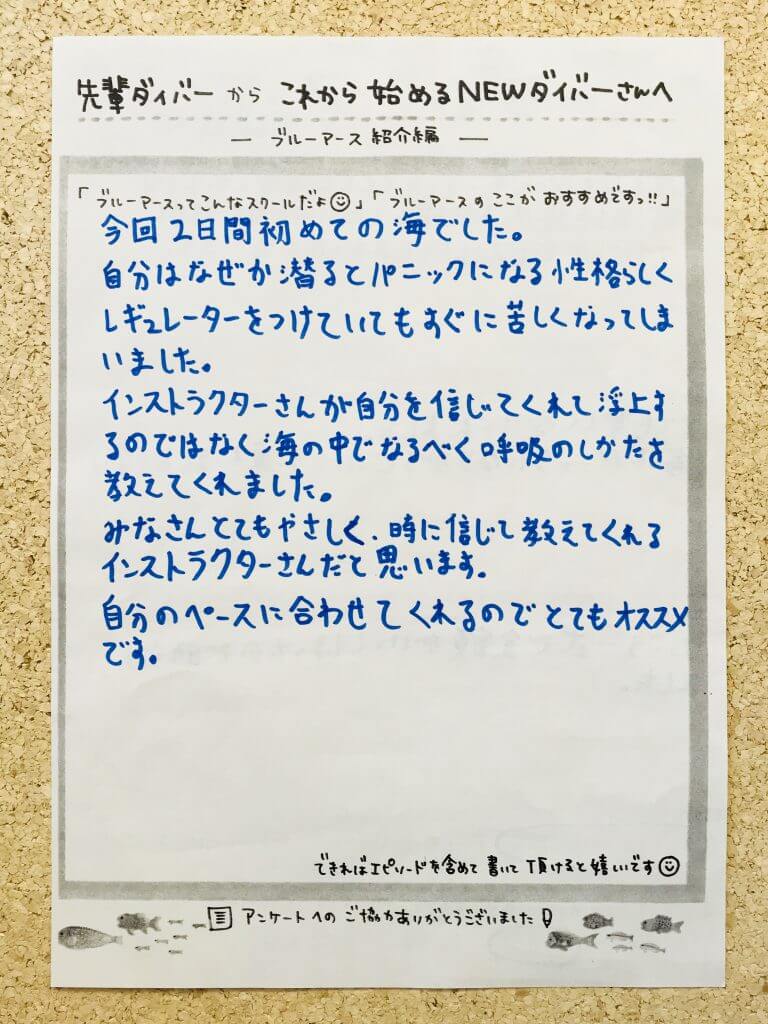 先輩ダイバーから これから始めるNEWダイバーさんへ
― ブルーアース紹介編 ―
「ブルーアースってこんなスクールだよ☺」「ブルーアースのここが おすすめですっ!!」
今回2日間初めての海でした。
自分はなぜか潜るとパニックになる性格らしく
レギュレーターをつけていてもすぐに苦しくなってしま
いました。
インストラクターさんが自分を信じてくれて浮上す
るのではなく海の中でなるべく呼吸のしかたを
教えてくれました。
みなさんとてもやさしく、時に信じて教えてくれる
インストラクターさんだと思います。
自分のペースに合わせてくれるのでとてもオススメ
です。
できればエピソードを含めて書いて頂けると嬉しいです☺
アンケートへのご協力ありがとうございました